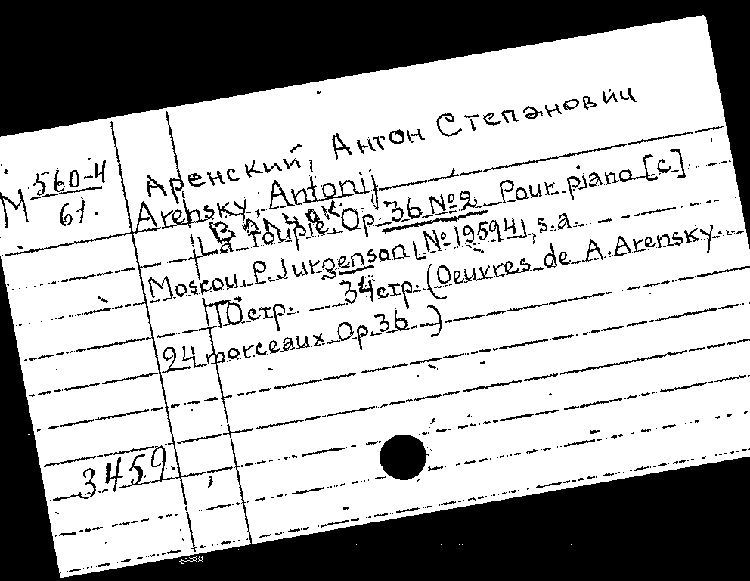 М 560-4
61.
Аренский, Антон Степанович
Arensky, Antonij
Волчок.
La Toupie. Op. 36 №2. Pour piano [c.]
Moscou, P. Jurgenson [№19594], s.a.
10стр. 34стр. (Oeuvres de A. Arensky
24 morceaux Op. 36 )
3459.